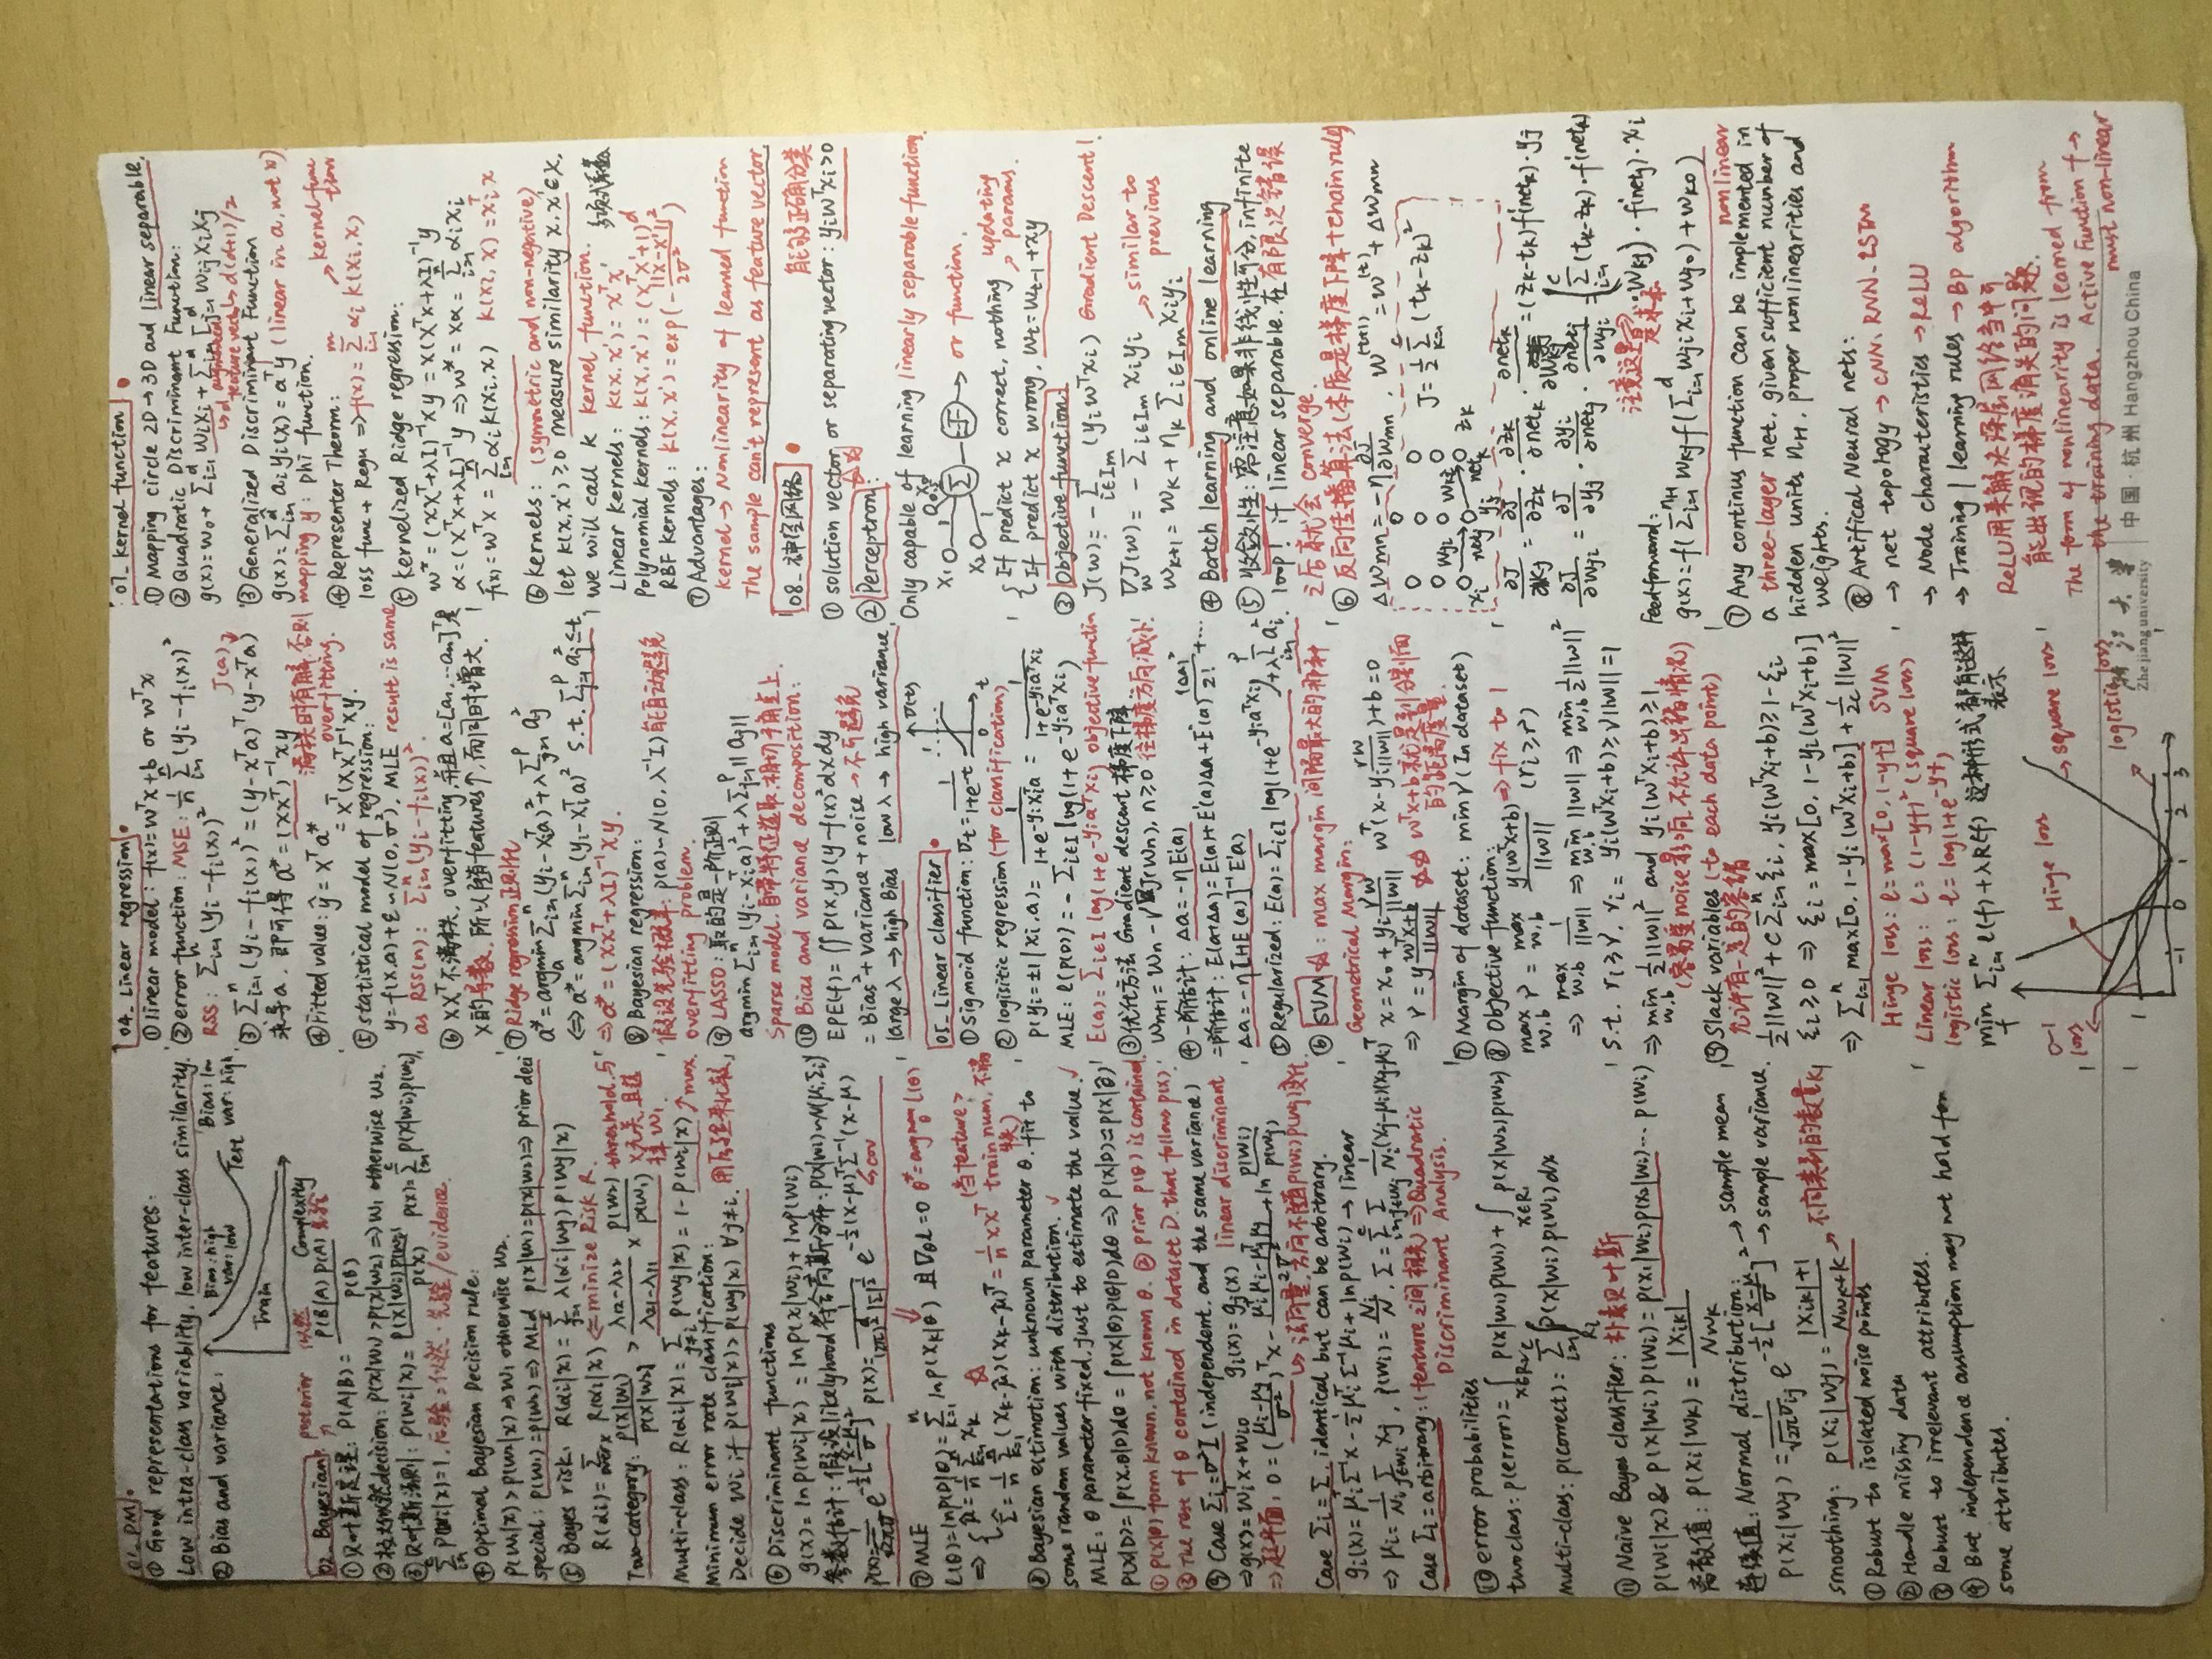 01_DM
① Good representations for features:
Low intra-class variablity, low inter-class similarity.
② Bias and variance:
Bias: high
var: low
Bias: low
var: high
Test
Train
Complexity
02_Bayesian
posterior 似然
① 贝叶斯定理: P(A|B) = P(B|A) P(A) / P(B) 先验
② 极大似然decision: P(x|w₁) > P(x|w₂) ⇒ w₁ otherwise w₂.
③ 贝叶斯法则: P(wi|x) = P(x|wi)P(wi) / P(x) P(x) = Σᶜᵢ₌₁ P(x|wi)P(wi),
Σᶜᵢ₌₁ P(wi|x)=1. 后验=似然·先验/evidence.
④ Optimal Bayesian Decision rule:
P(w₁|x) > P(w₂|x) ⇒ w₁ otherwise w₂.
special: P(w₁)=P(w₂) ⇒ MLd P(x|w₁)=P(x|w₂) ⇒ prior deci
⑤ Bayes risk. R(αi|x) = Σᶜⱼ₌₁ λ(αi|wj) P(wj|x)
R(αi) = Σ over x R(αi|x) ⇐ minize Risk R.
Two-category: P(x|w₁)/P(x|w₂) > (λ₁₂-λ₂₂)/(λ₂₁-λ₁₁) × P(w₂)/P(w₁) threshold 与
x无关 且选
择 w₁.
Multi-class: R(αi|x) = Σⱼ≠ᵢ P(wj|x) = 1-P(wi|x) ↑max.
Minimum error rate classification:
Decide wi if P(wi|x) > P(wj|x) ∀j≠i. 用后验来比较
⑥ Discriminant functions
g(x) = lnP(wi|x) = lnP(x|wi)+lnP(wi)
参数估计: 假设likelyhood符合高斯分布: P(x|wi)~N(μi,Σi)
P(x)=1/(√2π σ) e^(-½[(x-μ)/σ]²) P(x)=1/((2π)^(d/2)|Σ|^½) e^(-½(x-μ)ᵀΣ⁻¹(x-μ))
cov
⑦ MLE
ℓ(θ)=lnP(D|θ)=Σⁿₖ₌₁ lnP(xk|θ) 且∇θℓ=0 θ*=argmax ℓ(θ)
⇒ { μ̂ = 1/n Σⁿₖ₌₁ xk ☆ (当feature >
Σ̂ = 1/n Σⁿₖ₌₁ (xk-μ̂)(xk-μ̂)ᵀ = 1/n xxᵀ train num, 不满
秩)
⑧ Bayesian estimotion: unknown parameter θ. fit to
some random values with distribution. ✓
MLE: θ parameter fixed, just to estimate the value. ✓
P(x|D)=∫P(x,θ|D)dθ = ∫P(x|θ)P(θ|D)dθ ⇒ P(x|D)≈P(x|θ̂)
① P(x|θ) form known, not known θ. ② prior P(θ) is contained
③ The rest of θ contained in dataset D. that follows P(x).
⑨ Case Σi=σ²I (independent. and the same variance)
⇒ g(x)=wiᵀx+wi0 gi(x)=gj(x) linear discriminant
⇒超平面, 0=((μi-μj)/σ²)ᵀx-(μiᵀμi-μjᵀμj)/2σ²+ln P(wi)/P(wj)
↳ 法向量,方向不随P(wi)P(wj)变化.
Case Σi=Σ, identical but can be arbitrary.
gi(x)=μiᵀΣ⁻¹x-½μiᵀΣ⁻¹μi+lnP(wi) → linear
⇒ μi=1/Ni Σⱼ∈wi xj, P(wi)=Ni/N, Σ=Σᶜᵢ₌₁ Σⱼ∈wj 1/Ni (xj-μi)(xj-μi)ᵀ
Case Σi=arbitrary: (feature之间相关) ⇒Quadratic
Discriminant Analysis.
⑩ error probabilities
two class: P(error)=∫x∈R₂ P(x|w₁)P(w₁)+∫x∈R₁ P(x|w₂)P(w₂)
multi-class: P(correct)=Σᶜᵢ₌₁∫Ri P(x|wi)P(wi)dx
⑪ Naive Bayes classifier: 朴素贝叶斯
P(wi|x) & P(x|wi)P(wi)=P(x₁|wi)P(x₂|wi)... P(wi)
离散值: P(xi|wk)=|xik|/Nwk
连续值: Normal distribution: → sample mean
P(xi|wj)=1/(√2π σij) e^(-½[(x-μ)/σ]²) → sample variance.
smoothing: P(xi|wj)=(|xik|+1)/(Nwk+k) → 不同类别的数量k
① Robust to isolated noise points
② Handle missing data
③ Robust to irrelevant attributes.
④ But independence assumption may not hold for
some attributes.
04_Linear regression
① linear model: f(x)=wᵀx+b or wᵀx
② error function: MSE: 1/n Σⁿᵢ₌₁ (yi-fi(x))²
RSS: Σⁿᵢ₌₁(yi-fi(x))² J(a)
③ Σⁿᵢ₌₁(yi-fi(x))²=(y-xᵀa)ᵀ(y-xᵀa)
求导a. 即可得 a*=(xxᵀ)⁻¹xy
满秩时有解,否则
overfitting.
④ Fitted value: ŷ=xᵀa*
=xᵀ(xxᵀ)⁻¹xy.
⑤ statistical model of regression:
y=f(x,a)+ε~N(0,σ²), MLE result is same
as RSS(n): Σⁿᵢ₌₁(yi-fi(x))².
⑥ xxᵀ不满秩, overfitting, 并且a=[a₁,...an]ᵀ是
x的导数. 所以随features↑,而同时增大.
⑦ Ridge regression正则化
a*=argmin Σⁿᵢ₌₁(yi-xiᵀa)²+λΣᵖⱼ₌₁ aj²
⇔ a*=argmin Σⁿᵢ₌₁(yi-xiᵀa)² s.t. Σᵖⱼ₌₁ aj²≤t
⇒ a*=(xxᵀ+λI)⁻¹xy.
⑧ Bayesian regression:
假设先验概率: P(a)~N(0,λ⁻¹I) 能自动避免
overfitting problem.
⑨ LASSO: 取的是一阶正则
argmin Σⁿᵢ₌₁(yi-xiᵀa)²+λΣᵖⱼ₌₁||aj||
Sparse model. 自带特征选取.相切于角点上.
⑩ Bias and variance decomposition:
EPE(f)=∫∫P(x,y)(y-f(x)²dxdy
=Bias²+variance+noise → 不可避免
large λ → high Bias low λ → high variance
05_Linear classifier
σ(t)
0 t
① Sigmoid function: σt=1/(1+e⁻ᵗ)
② logisitic regression (for classification)
P(yi=±1|xi,a)=1/(1+e^(-yixiᵀa))=1/(1+e^(-yiaᵀxi))
MLE: ℓ(P(D))=-Σi∈I log(1+e^(-yiaᵀxi))
E(a)=Σi∈I log(1+e^(-yiaᵀxi)) objective-function
③ 优化方法 Gradient descent 梯度下降
wn+1=wn-γ∇J(wn), n≥0 往梯度方向减小!
④ 一阶估计: Δa=-ηE'(a)
二阶估计: E(a+Δa)=E(a)+E'(a)Δa+E''(a)(Δa)²/2!+...
Δa=-η[HE(a)]⁻¹E'(a)
⑤ Regularized: E(a)=Σi∈I log(1+e^(-yiaᵀxi))+λΣᵖᵢ₌₁ai².
⑥ SVM ☆: max margin 间隔最大的那种
Geometrical Margin:
x=x₀+yi γw/||w|| wᵀ(x-yi rw/||w||)+b=0
⇒ γ=y (wᵀx+b)/||w|| ☆☆ wᵀx+b就是到分割面
的距离度量.
⑦ Margin of dataset: min γ (In dataset)
⑧ Objective function:
max w,b γ=max w,b y(wᵀx+b)/||w|| ⇒ fix to 1 (ri≥r)
⇒ max w,b 1/||w|| ⇒ min w,b ||w|| ⇒ min w,b ½||w||²
s.t. ri≥γ. ri=yi(wᵀxi+b)≥γ||w||=1
⇒ min w,b ½||w||² and yi(wᵀxi+b)≥1,
(容易受noise影响,不允许出错情况)
⑨ Slack variables (to each data point)
允许有一定的容错
½||w||²+CΣⁿᵢ₌₁ξi, yi(wᵀxi+b)≥1-ξi
ξi≥0 ⇒ ξi=max[0, 1-yi(wᵀxi+b)]
⇒ Σⁿᵢ₌₁ max[0, 1-yi(wᵀxi+b)]+1/2c ||w||²
Hinge loss: ℓ=max[0, 1-yf] SVM
Linear loss: ℓ=(1-yf)² (square loss)
logistic loss: ℓ=log(1+e^-yf)
min f Σⁿᵢ₌₁ ℓ(f)+λR(f) 这种形式都能这样
表示
0-1
loss
Hinge loss
square loss
logistic loss
1
-1 0 1 2 3
07_kernel function
① Mapping circle 2D→3D and linear separable.
② Quadratic Discriminant Function:
g(x)=w₀+Σᵈᵢ₌₁wixi+Σᵈᵢ₌₁Σᵈⱼ₌₁wijxixj
d augmented
feature vector d(d+1)/2
③ Generalized Discriminant Function
g(x)=Σᵈ̂ᵢ₌₁ aiyi(x)=aᵀy (linear in a, not x)
mapping y: phi function.
④ Representer Theorm: kernel-func
tion
loss func + Regu ⇒ f(x)=Σᵐᵢ₌₁αi k(xi,x)
⑤ Kernelized Ridge regression:
w*=(xxᵀ+λI)⁻¹xy=x(xᵀx+λI)⁻¹y
α=(xᵀx+λI)⁻¹y ⇒ w*=xα=Σⁿᵢ₌₁αixi
f̂(x)=wᵀx=Σⁿᵢ₌₁αik(xi,x) k(xi,x)=xiᵀx
⑥ Kernels: (symmetric and non-negative)
let k(x,x')≥0 measure similarity x,x'∈X,
we will call k kernel function.
Linear Kernels: k(x,x')=xᵀx'
Polynomial kernels: k(x,x')=(xᵀx'+1)ᵈ
RBF kernels: k(x,x')=exp(-||x-x'||²/2σ²)
⑦ Advantages:
kernel → Nonlinearity of learned function
The sample can't represent as feature vector.
08_神经网络
能够正确分类
① solution vector or separating vector: yiwᵀxi>0
② Perceptron: ☆☆
Only capable of learning linearly separable function.
x₀
x₁ 1 Σ
x₂ 1
or function.
{ If predict x correct, nothing updating
params.
If predict x wrong, wt=wt-1+xy
③ Objective function:
J(w)=-Σi∈Im (yiwᵀxi) Gradient Descent!
∇w J(w)=-Σi∈Im xiyi → similar to
previous
wk+1=wk+ηkΣi∈Im xiyi
④ Batch learning and online learning
⑤ 收敛性: 需注意如果非线性可分,infinite
loop! if linear separable. 在有限次错误
之后就会 converge.
⑥ 反向传播算法(本质是梯度下降+chain rule)
Δwmn=-η ∂J/∂wmn, w⁽ᵗ⁺¹⁾=w⁽ᵗ⁾+Δwmn
J=½Σᶜₖ₌₁(tk-zk)²
wji wkj
xi netj yj netk zk
∂J/∂wkj=∂J/∂zk·∂zk/∂netk·∂netk/∂wkj=(zk-tk)f'(netk)·yj
∂J/∂wji=∂J/∂yj·∂yj/∂netj·∂netj/∂wji=(Σᶜᵢ₌₁(tk-zk)·f'(netk)
注意这里 ·wkj)·f'(netj)·xi
是求和
Feed-forward:
g(x)=f(Σⁿᴴᵢ₌₁wkjf(Σᵈᵢ₌₁wjixi+wj0)+wk0)
nonlinear
⑦ Any continus function can be implemented in
a three-layer net, given sufficient number of
hidden units nH, proper nonlinearities and
weights.
⑧ Artifical Neural nets:
→ net topology → CNN、RNN、LSTM
→ Node characteristics → ReLU
→ Training / learning rules → Bp algorithm
ReLU用来解决深层网络当中可
能出现的梯度消失的问题.
The form of nonlinearity is learned from
the training data. Active Function f →
must non-linear
浙江大学
Zhejiang university
中国·杭州 Hangzhou China